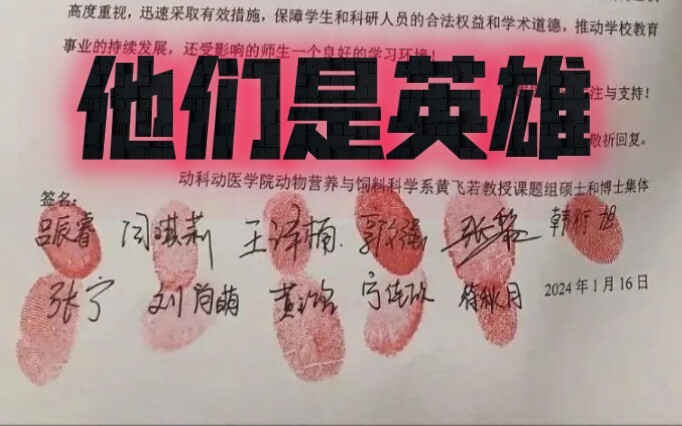 高度重视，迅速采取有效措施，保障学生和科研人员的合法权益和学术道德，推动学校教育
事业的持续发展，还受影响的师生一个良好的学习环境！
他们是英雄
注与支持！
敬祈回复。
动科动医学院动物营养与饲料科学系黄飞若教授课题组硕士和博士集体
签名：
吕辰睿 闫淇莉 王译楠 郭强 张黎 韩行
张宁 刘尚萌 黄 宁佳欣 符秋月 2024年1月16日